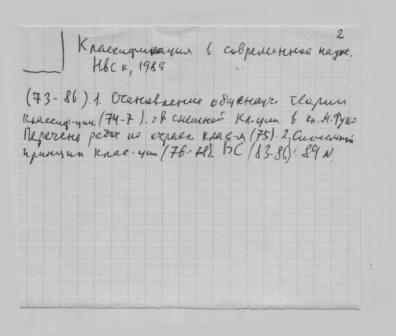 2
Классификация в современной науке.
Нвск, 1989
(73-86) 1. Становление общенауч. теории
классиф-ции (74-7). в смешной кл-ции в кн. М. Фуко
Перечень работ по отрасл. клас-и (75). 2. 
принцип клас-ции (76-78). DC (83-86): 89 N